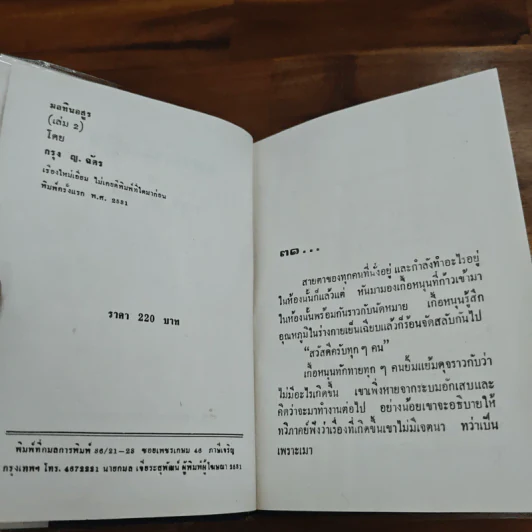 มลทินอสูร
(เล่ม 2)
โดย
กรุง ญ. ฉัตร
เรื่องใหม่เอี่ยม ไม่เคยตีพิมพ์ที่ใดมาก่อน
พิมพ์ครั้งแรก พ.ศ. 2531
ราคา 220 บาท
พิมพ์ที่กมลการพิมพ์ 36/21-23 ซอยเพชรเกษม 46 ภาษีเจริญ
กรุงเทพฯ โทร. 4672221 นายกมล เจียระสุพัฒน์ ผู้พิมพ์ผู้โฆษณา 2531
๓๑...
สายตาของทุกคนที่นั่งอยู่ และกำลังทำอะไรอยู่
ในห้องนั้นก็แล้วแต่ หันมามองเกื้อหนุนที่ก้าวเข้ามา
ในห้องนั้นพร้อมกันราวกับนัดหมาย เกื้อหนุนรู้สึก
อุณหภูมิในร่างกายเย็นเฉียบแล้วก็ร้อนจัดสลับกันไป
“สวัสดีครับทุก ๆ คน”
เกื้อหนุนทักทายทุก ๆ คนยิ้มแย้มดุจราวกับว่า
ไม่มีอะไรเกิดขึ้น เขาเพิ่งหายจากระบมอักเสบและ
คิดว่าจะมาทำงานต่อไป อย่างน้อยเขาจะอธิบายให้
ทวิภาคย์ฟังว่าเรื่องที่เกิดขึ้นเขาไม่มีเจตนา ทว่าเป็น
เพราะเมา